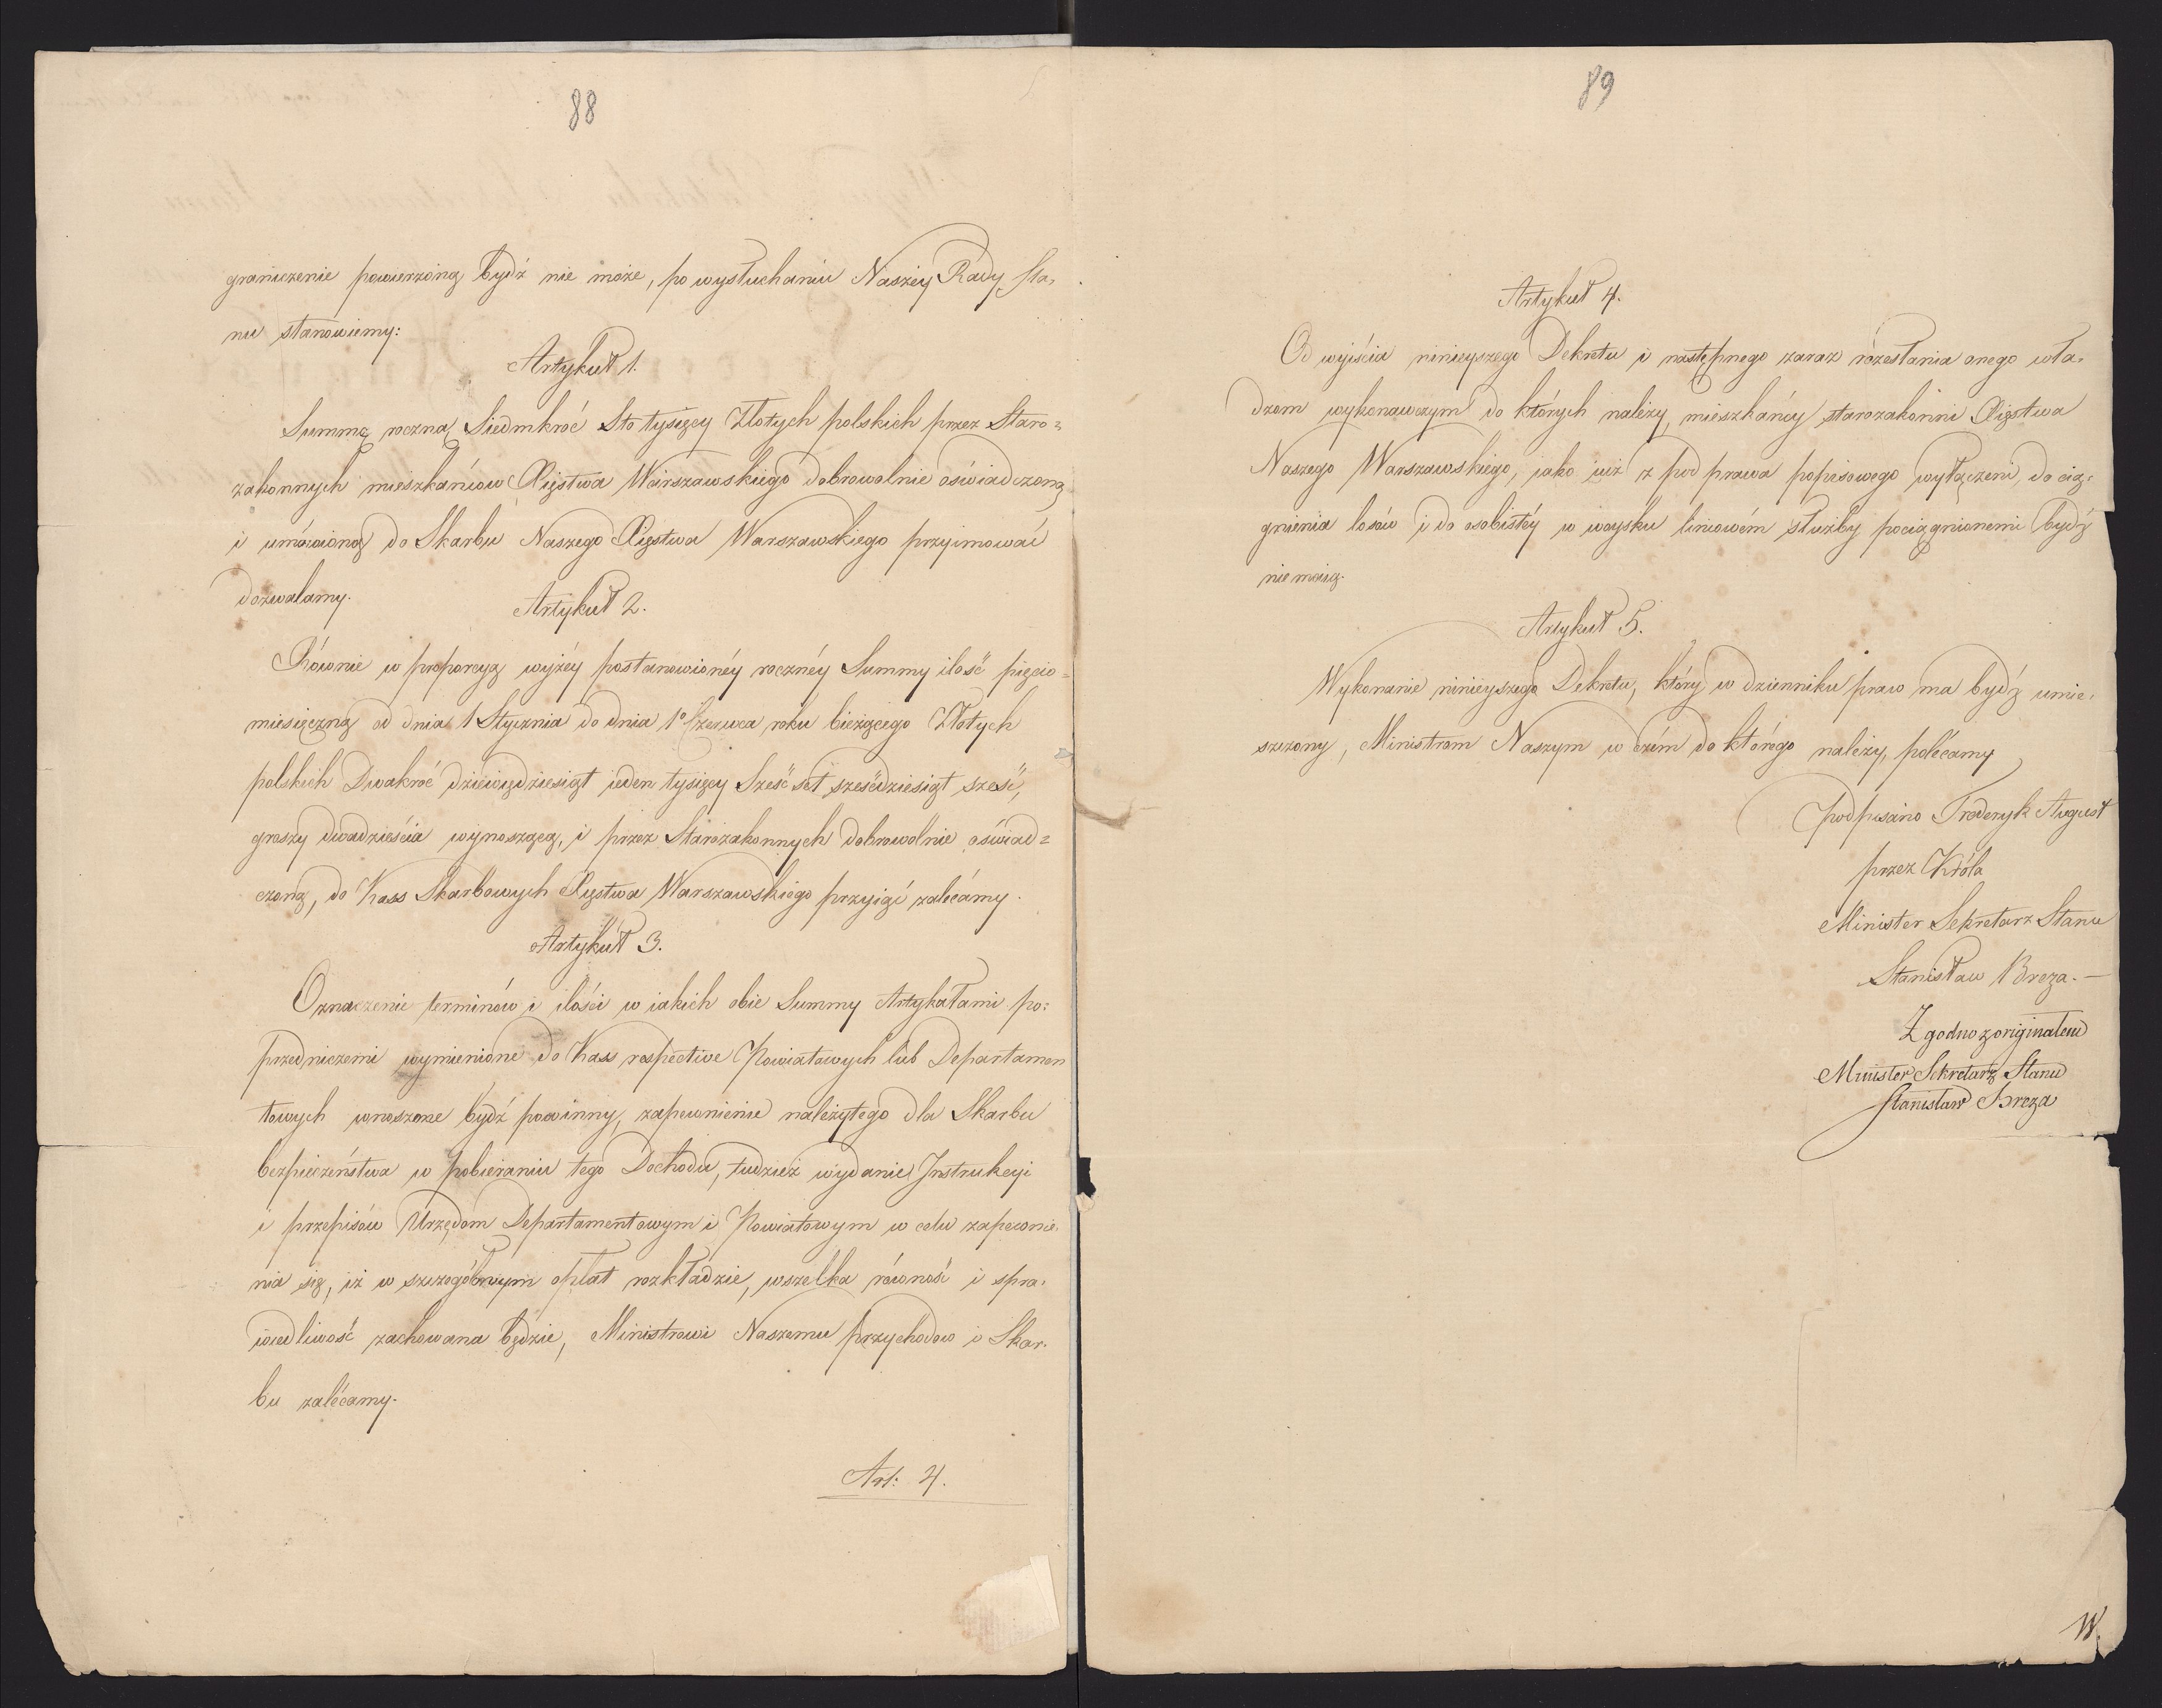 88
graniczenie powierzoną bydź nie może, po wysłuchaniu Naszéy Rady Sta-
nu stanowiemy:
Artykuł 1.
Summę roczną Siedmkroć Sto tysięcy Złotych polskich przez Staro=
zakonnych mieszkańców Xięstwa Warszawskiego dobrowolnie oświadczoną
i umówioną do Skarbu Naszego Xięstwa Warszawskiego przyimować
dozwalamy.
Artykuł 2.
Równie w proporcyą wyżéy postanowionéy rocznéy Summy ilość pięcio=
miesięczną od dnia 1 Stycznia do dnia 1º Czerwca roku bieżącego Złotych
polskich Dwakroć dziewiędziesiąt ieden tysięcy Sześć set sześćdziesiąt sześć,
groszy dwadzieścia wynoszącą, i przez Starozakonnych dobrowolnie oświad=
czoną, do Kass Skarbowych Xięstwa Warszawskiego przyiąć zalécamy.
Artykuł 3.
Oznaczenie terminów i ilości w iakich obie Summy Artykułami po=
przedniczemi wymienione do Kass respective Powiatowych lub Departamen
towych wnoszone bydź powinny, zapewnienie należytego dla Skarbu
bezpieczeństwa w pobieraniu tego Dochodu, tudzież wydanie Instrukcyi
i przepisów Urzędom Departamentowym i Powiatowym w celu zapewnie-
nia się, iż w szczególnym opłat rozkładzie, wszelka równość i spra-
wiedliwość zachowana będzie, Ministrowi Naszemu przychodow i Skar-
bu zalécamy.
Art: 4.
89
Artykuł 4.
Od wyiścia ninieyszego Dekretu i następnego zaraz rozesłania onego wła-
dzom wykonawczym do których należy, mieszkańcy starozakonni Xięstwa
Naszego Warszawskiego, iako iuż z pod prawa popisowego wyłączeni, do cią-
gnienia losów i do osobistéy w woysku liniowém służby pociągnionemi bydź
nie maią.
Artykuł 5.
Wykonanie ninieyszego Dekretu, który w dzienniku praw ma bydź umie-
szczony, Ministrom Naszym w czém do którego należy, polécamy
podpisano Frederyk August
przez Króla
Minister Sekretarz Stanu
Stanisław Breza.—
Zgodno z originałem
Minister Sekretarz Stanu
Stanisław Breza
W.